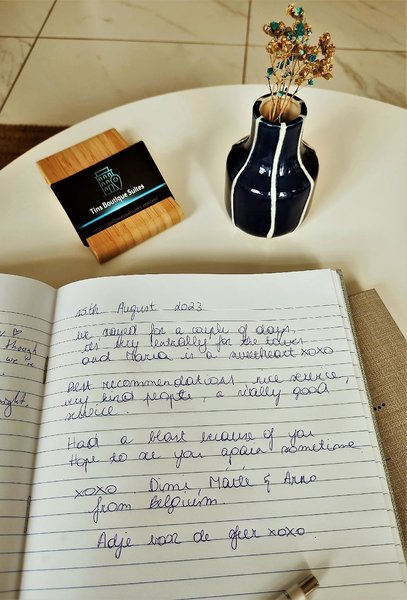 Tins Boutique Suites
though
we're
night,
15th August 2023
we stayed for a couple of days,
its very centrally for the tours
and Maria is a sweetheart xoxo
Best recommendations, nice service,
very kind people, a really good
service.
Had a blast because of you
Hope to see you again sometime
xoxo Dimi, Maite & Arno
from Belgium.
Adje voor de sfeer xoxo.